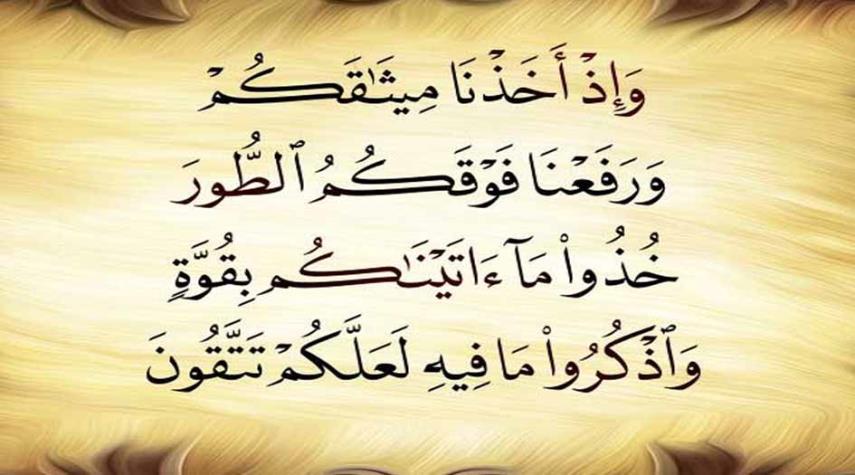 وَإِذْ أَخَذْنَا مِيثَـٰقَكُمْ
وَرَفَعْنَا فَوْقَكُمُ ٱلطُّورَ
خُذُوا۟ مَآ ءَاتَيْنَـٰكُم بِقُوَّةٍ
وَٱذْكُرُوا۟ مَا فِيهِ لَعَلَّكُمْ تَتَّقُونَ